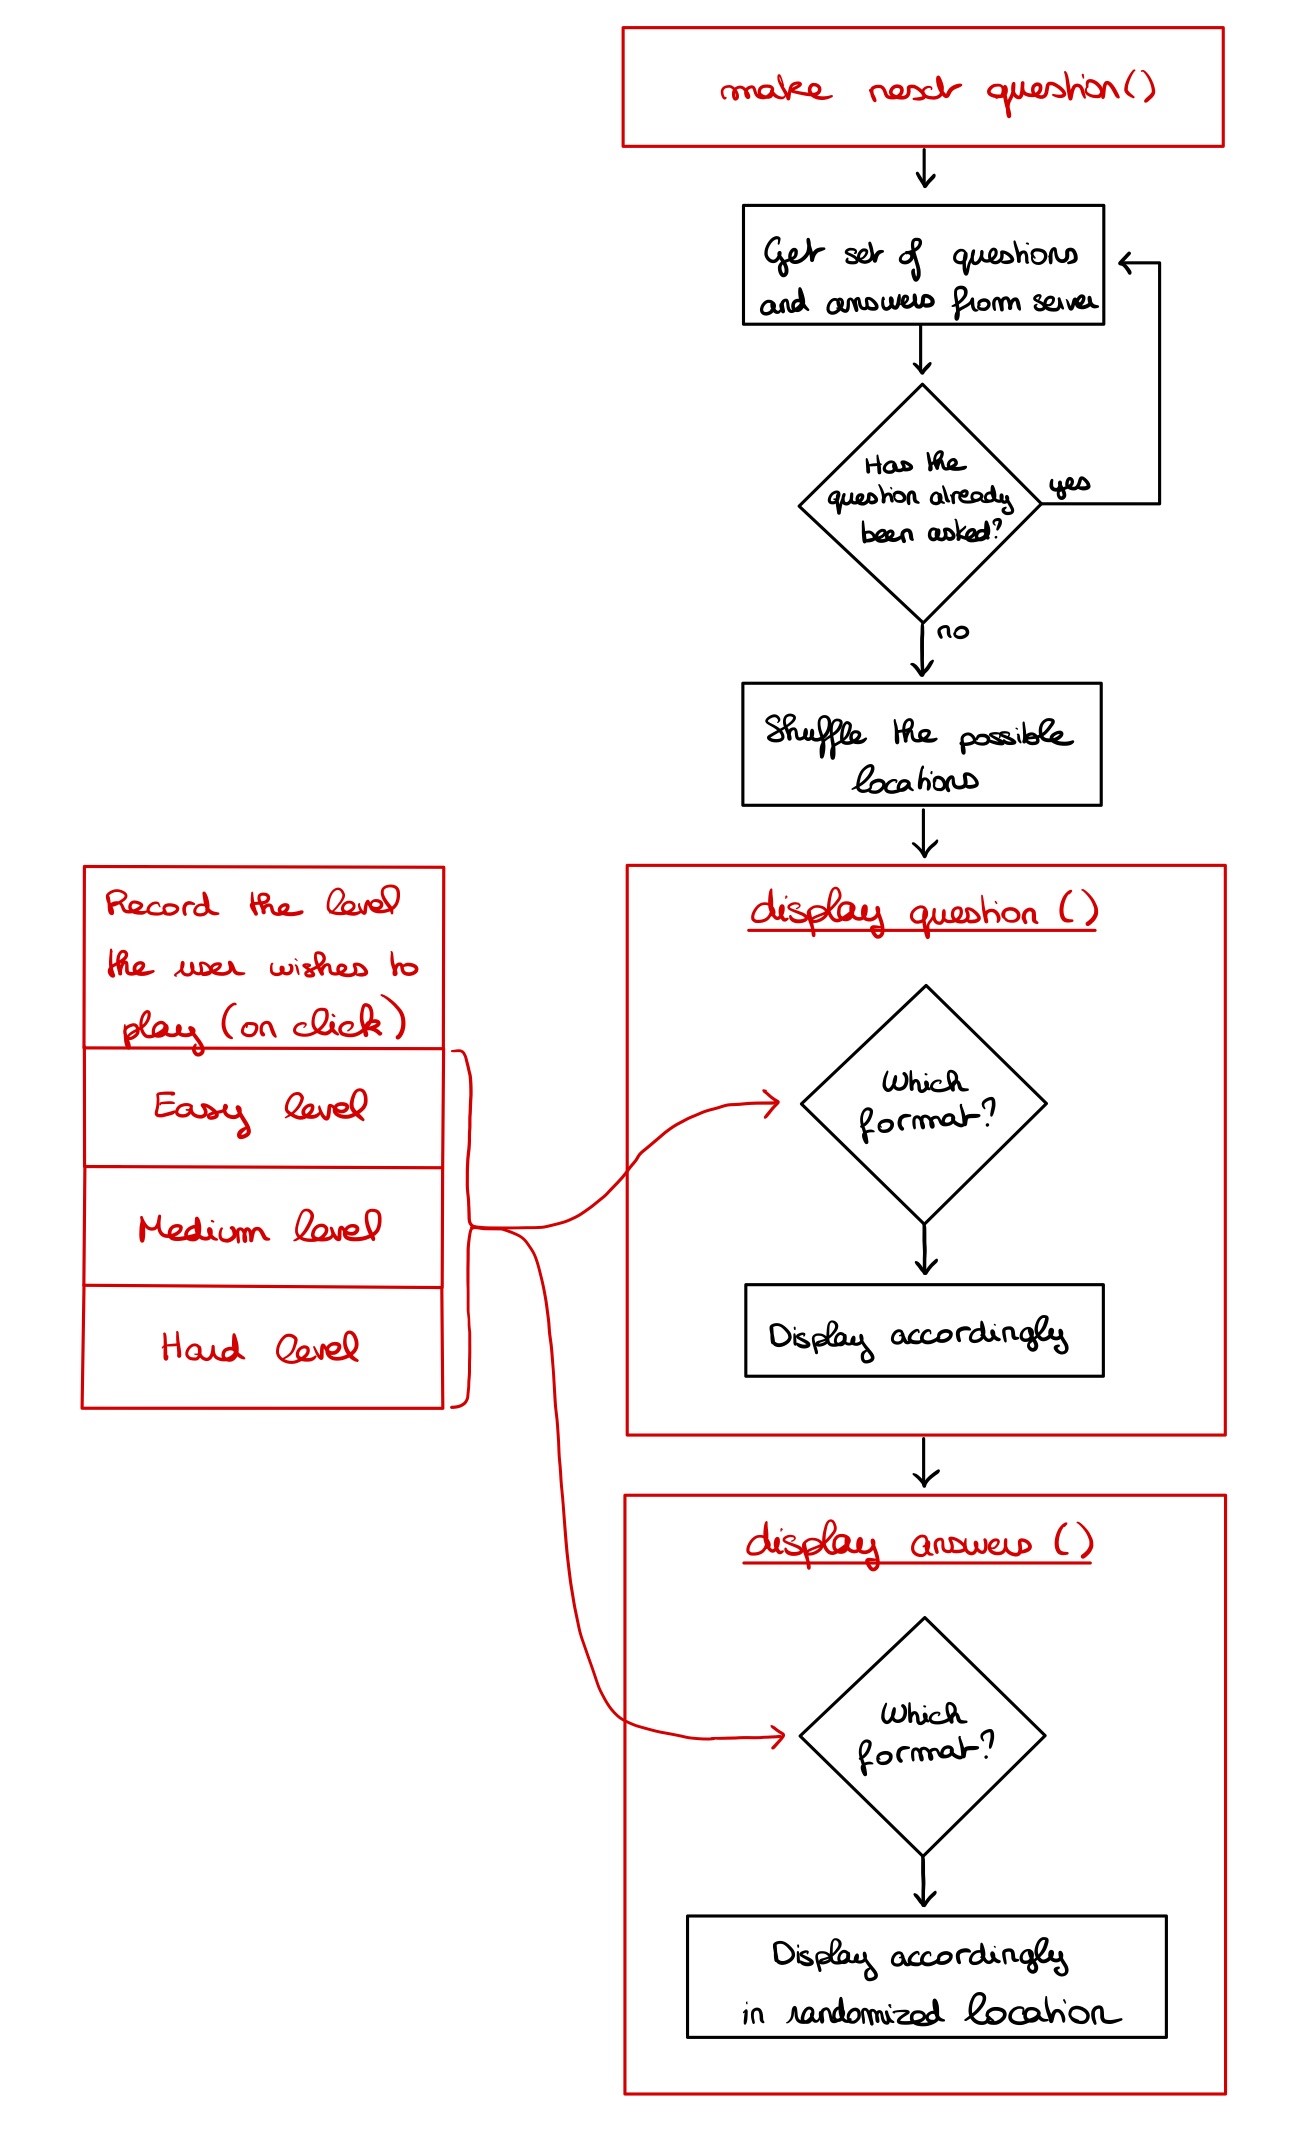 make next question()
Get set of questions
and answers from server
Has the
question already
been asked?
yes
no
Shuffle the possible
locations
Record the level
the user wishes to
play (on click)
Easy level
Medium level
Hard level
display question ()
Which
format?
Display accordingly
display answers ()
Which
format?
Display accordingly
in randomized location